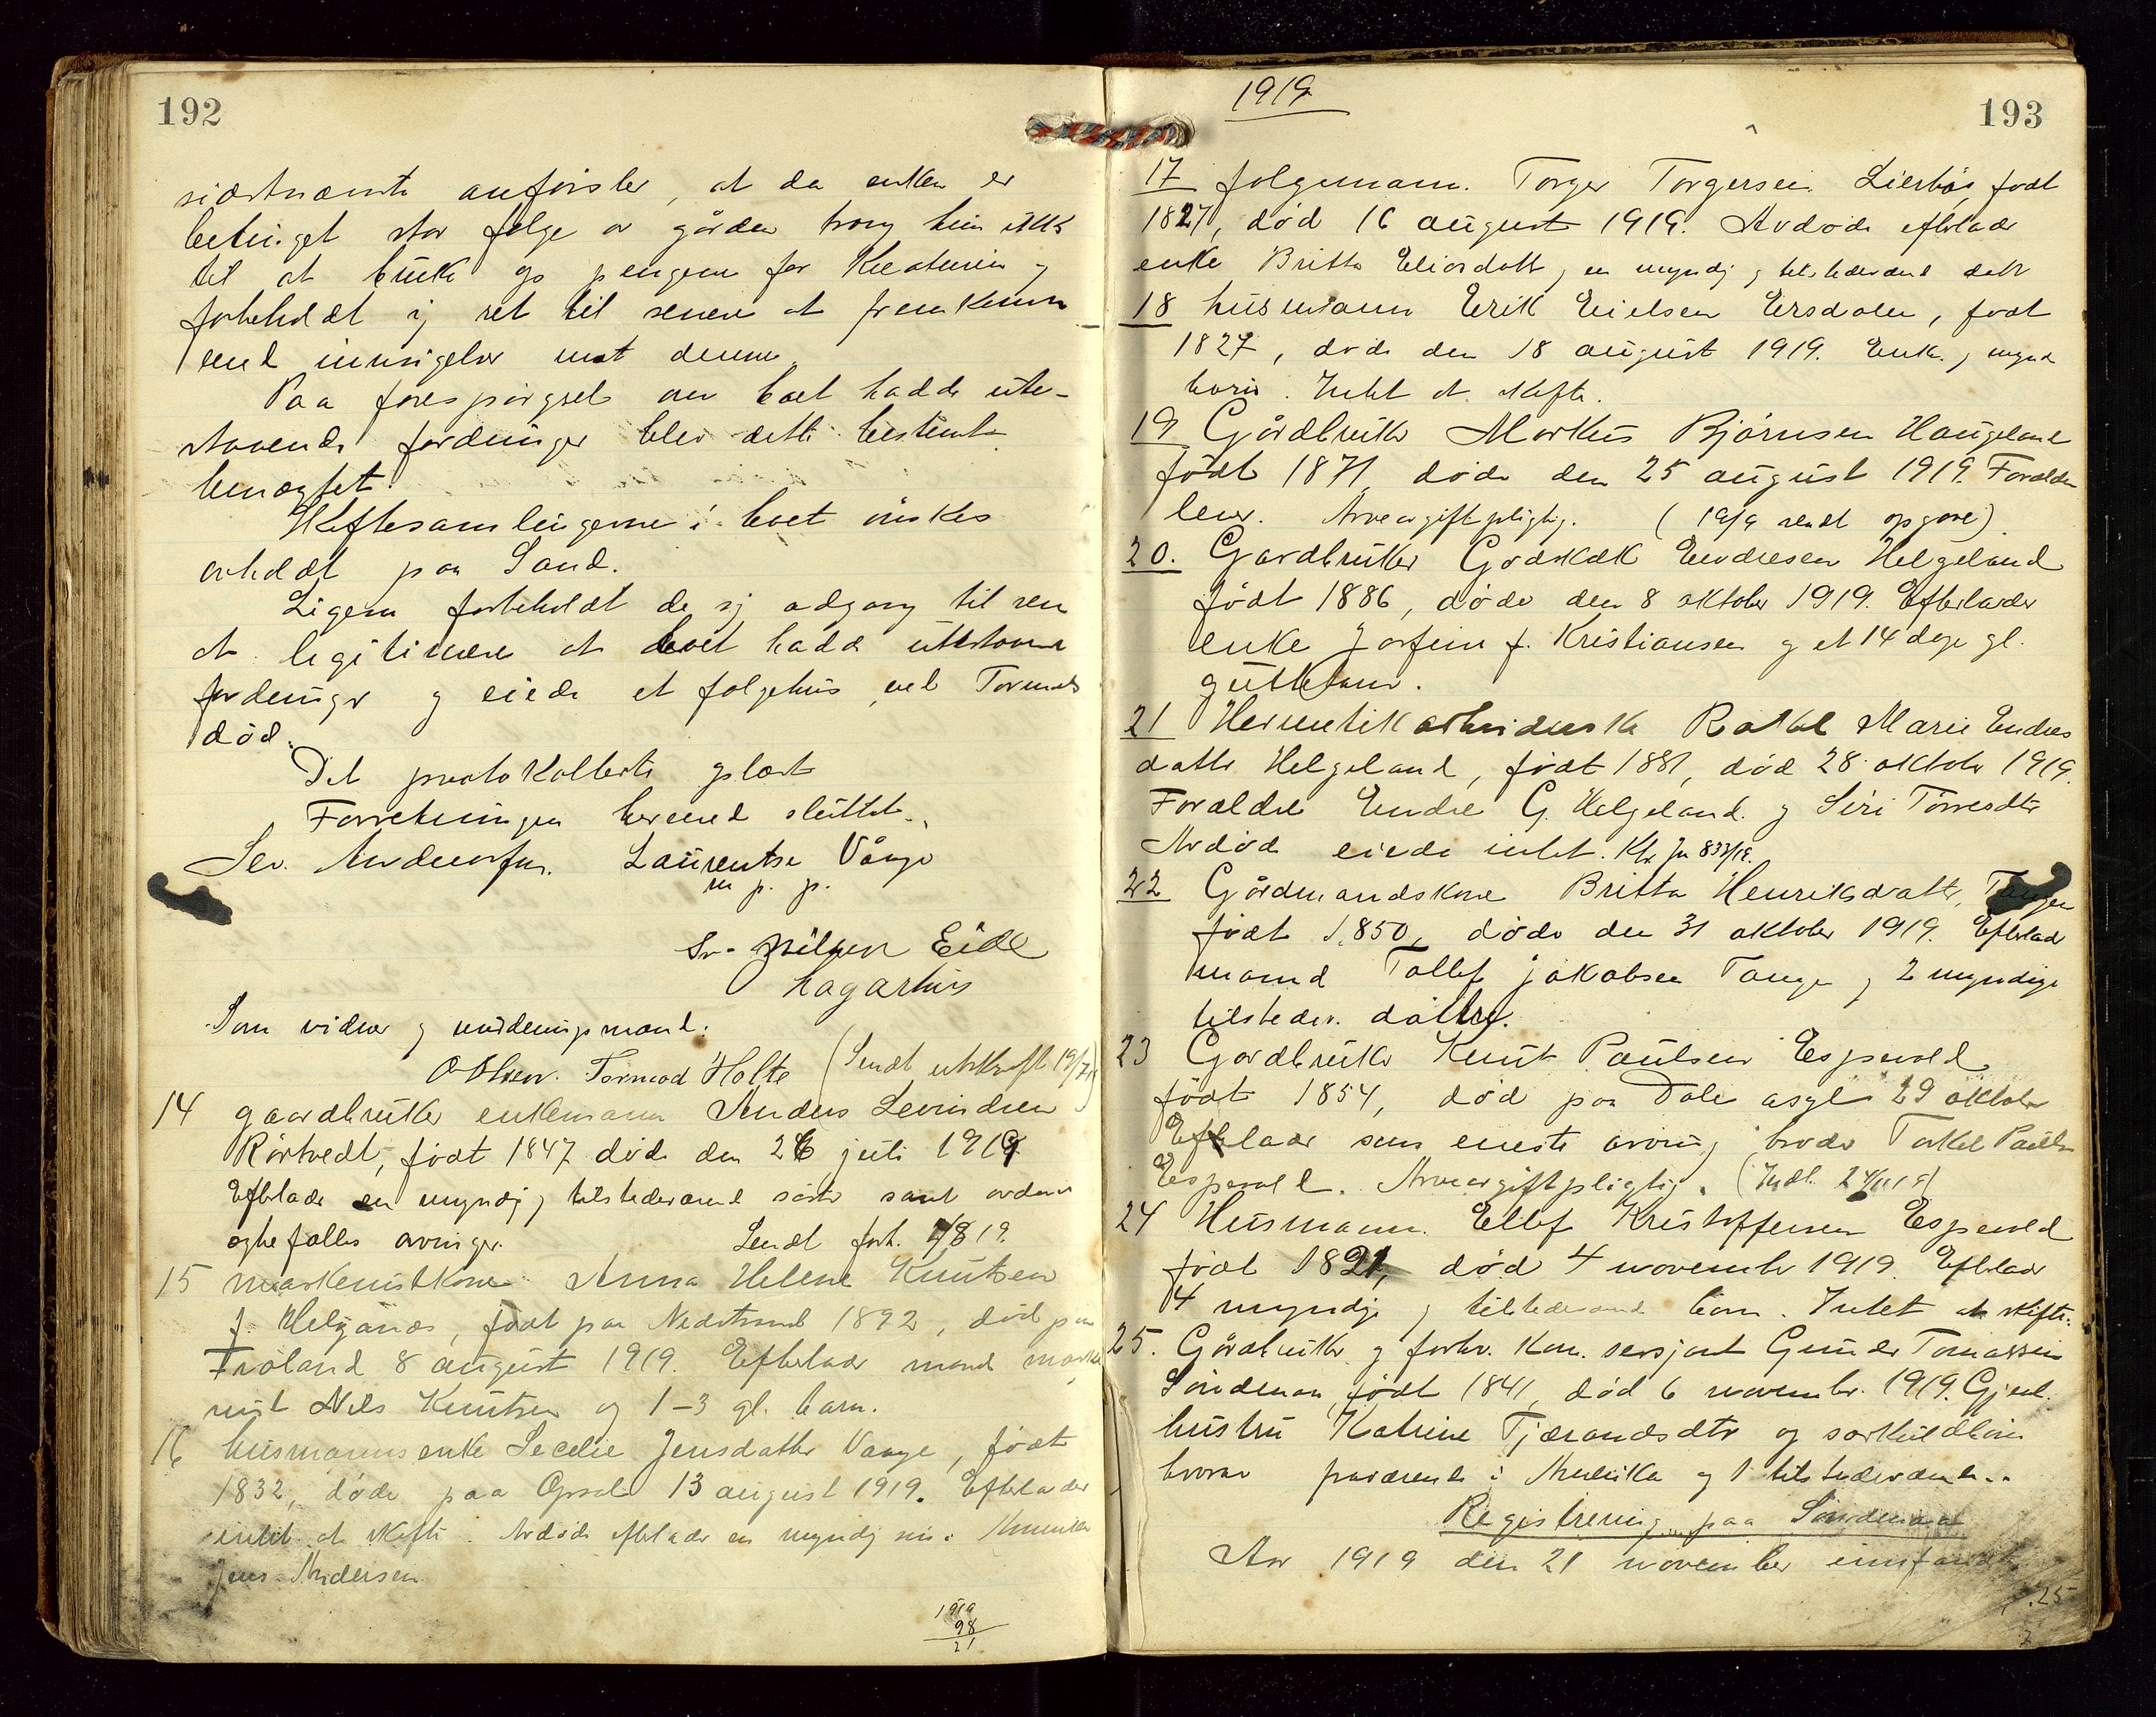 192
sidstnævnte anførsler, at da enken er
betinget stor følge av gården trong hun ikke
til at bruke op pengene for kreaturin og
forbeholdt sig ret til senere at fremkomme
med innsigelser mot denne.
Paa forespørgsel om boet hadde ute-
staaende fordringer blev dette bestemt
benægtet.
Skiftesamlingerne i boet ønskes
avholdt paa Sand.
Ligesaa forbeholdt de sig adgang til sen
at legitimere at boet hadde utestaaende
fordringer og eiede et følgehus ved Tormods
død.
Det protokollerte oplæst
Forretningen hermed sluttet.
Sev. Andersen. Laurentse Vånge
m p. p.
Eide
Lagarhus
Som vidner og vurderingsmænd:
O Olsen. Tormod Holte (Sendt utskrift 19/7 19)
14 gaardbruker enkemann Anders Sevrindsen
Rørtvedt, født 1847 døde den 26 juli 1919
Efterlader en myndig tilstedeværend søster samt avdøde
søskes arvinger. Sendt fort. 7/8 19.
15 maskinistkone Anna Helene Knutsen
f. Helgånes, født paa Nedstrand 1892, død paa
Frøland 8 august 1919. Efterlader mand maski
nist Nils Knutsen og 1-3 gl. barn.
16 husmannsenke Secelie Jensdatter Vånge, født
1832, døde paa Opsal 13 august 1919. Efterlader
intet at skifte. Avdøde efterlader en myndig søn:
Jens Andersen
1919
98
21
1919
193
17 følgemann. Torger Torgersen Liestøl, født
1827, død 16 august 1919. Avdøde efterlader
enke Britta Eliasdatt, en myndig og tilstedevarend datt
18 husmann Erik Eielsen Ersdalen, født
1827, døde den 18 august 1919. Enke og mynd
barn. Intet at skifte.
19 Gårdbruker Markus Bjørnsen Haugeland
født 1871, døde den 25 august 1919. Forældre
lever. Arveavgiftpligtig. (19/9 sendt opgave)
20. Gardbruker Godskalk Endresen Helgeland
født 1886, døde den 8 oktober 1919. Efterlader
enke Jorfinn f. Kristiansen og et 14 dage gl.
guttebarn.
21 Hermetikarbeiderske Rakel Marie Endres
datter Helgeland, født 1881, død 28 oktober 1919.
Forældre Endre G. Helgeland og Siri Tørresdtr
Avdøde eiede intet. Kfr Jn 833/19.
22 Gårdmandskone Britta Henriksdatter, Tangen
født 1850, døde den 31 oktober 1919. Efterlader
mand Tollef Jakobsen Tange og 2 myndige
tilstedev. døttre.
23 Gardbruker Knut Paulsen Espevold
født 1854, død paa Dale asyl 29 oktober
Efterlader som eneste arving broder Torkel Paulsen
Espevold. Arveavgiftpligtig. (Indt. 24/11 19)
24 Husmann. Ellef Kristoffersen Espevold
født 1821, død 4 november 1919 Efterlader
4 myndige og tilstedeværende barn. Intet at skifte.
25. Gårdbruker og forhv. kom. sersjant Gunder Tomassen
Søndenaa, født 1841, død 6 november. 1919. Gjenl.
hustru Katrine Tjærandsdtr og særkuldbarn
hvorav fraværende i Amerika og 1 tilstedeværende.
Registrering paa Søndenaa
Aar 1919 den 21 november innfandt
25